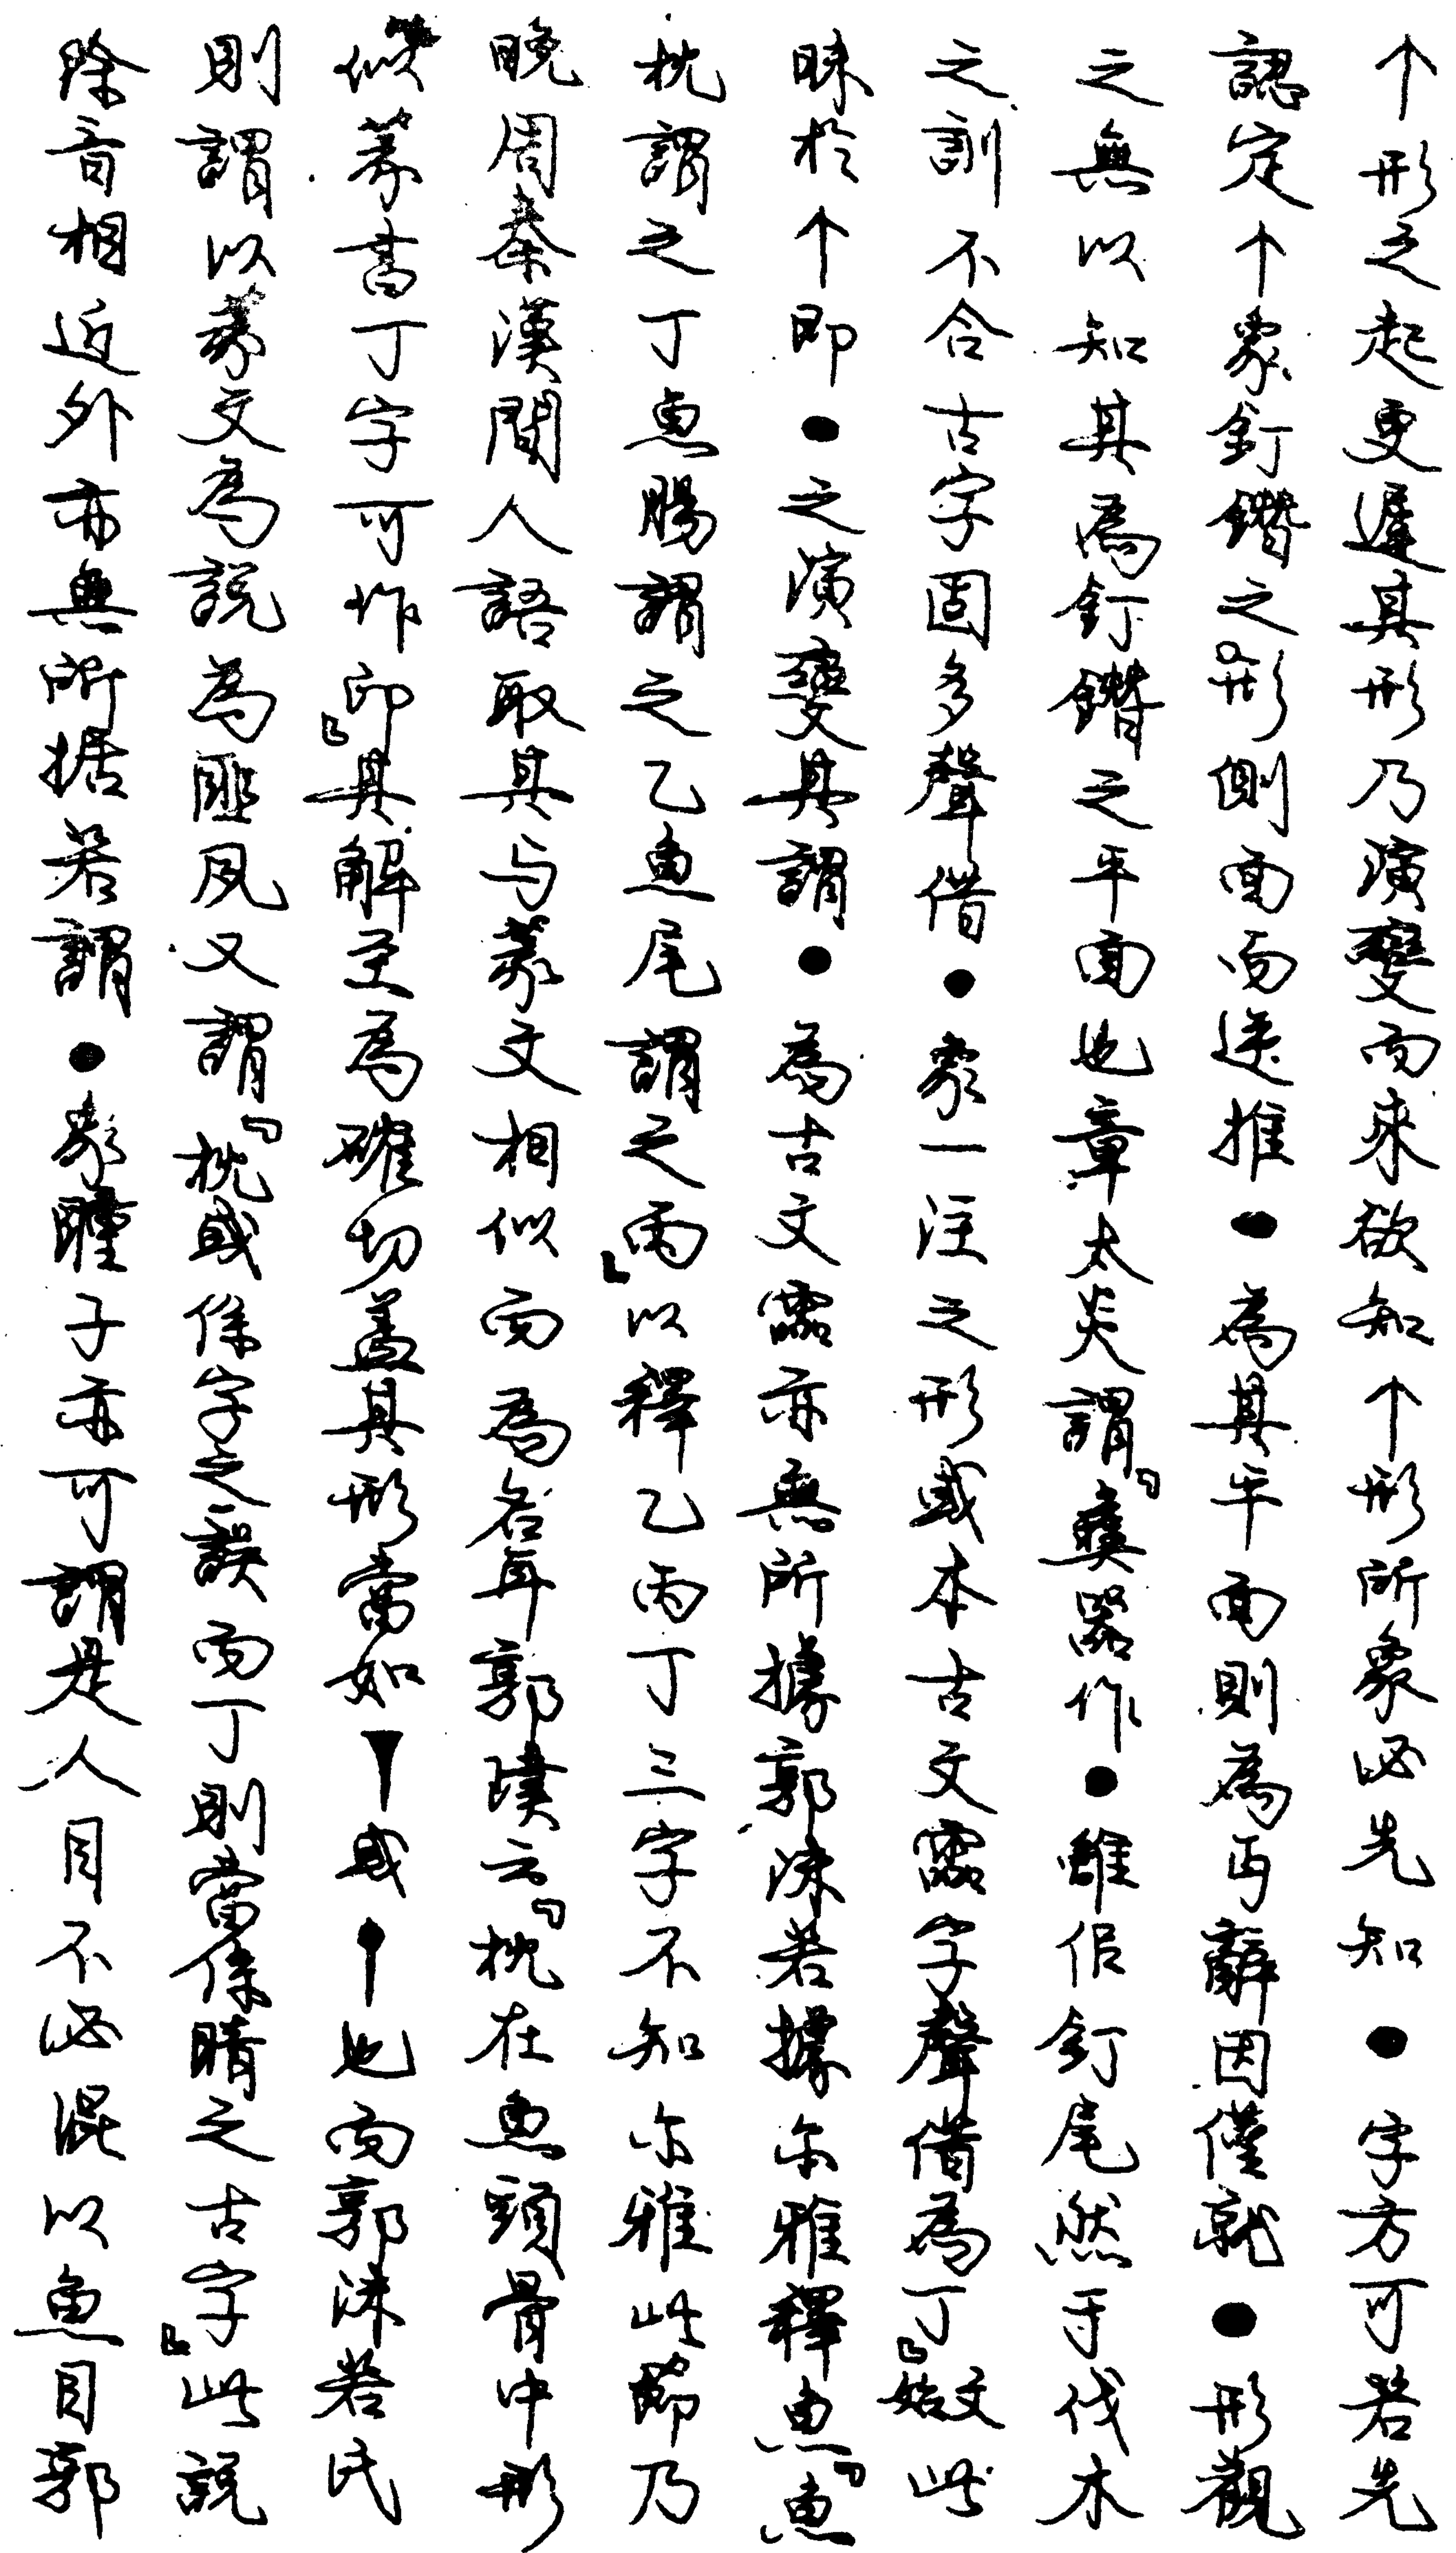 ↑形之起更遲其形乃演變而來欲知↑形所象必先知●字方可若先
認定↑象釘鐕之形側面而逆推●為其平面則為丐辭因僅就●形觀
之無以知其為釘鐕之平面也章太炎謂『彝器作●雖侣釘尾然于伐木
之訓不合古字固多聲借●象一注之形或本古文霝字聲借為丁』文始此
昧於↑即●之演變其謂●為古文霝亦無所據郭沫若據尔雅釋魚『魚
枕謂之丁魚腸謂之乙魚尾謂之丙』以釋乙丙丁三字不知尔雅此節乃
晚周秦漢間人語取其与篆文相似而為名耳郭璞云『枕在魚頭骨中形
似篆書丁字可作印』其解至為確切蓋其形當如也而郭沫若氏
則謂以篆文為說為匪夙又謂『枕或係字之誤而丁則當係睛之古字』此說
除音相近外亦無所据若謂●象瞳子亦可謂是人目不必混以魚目郭